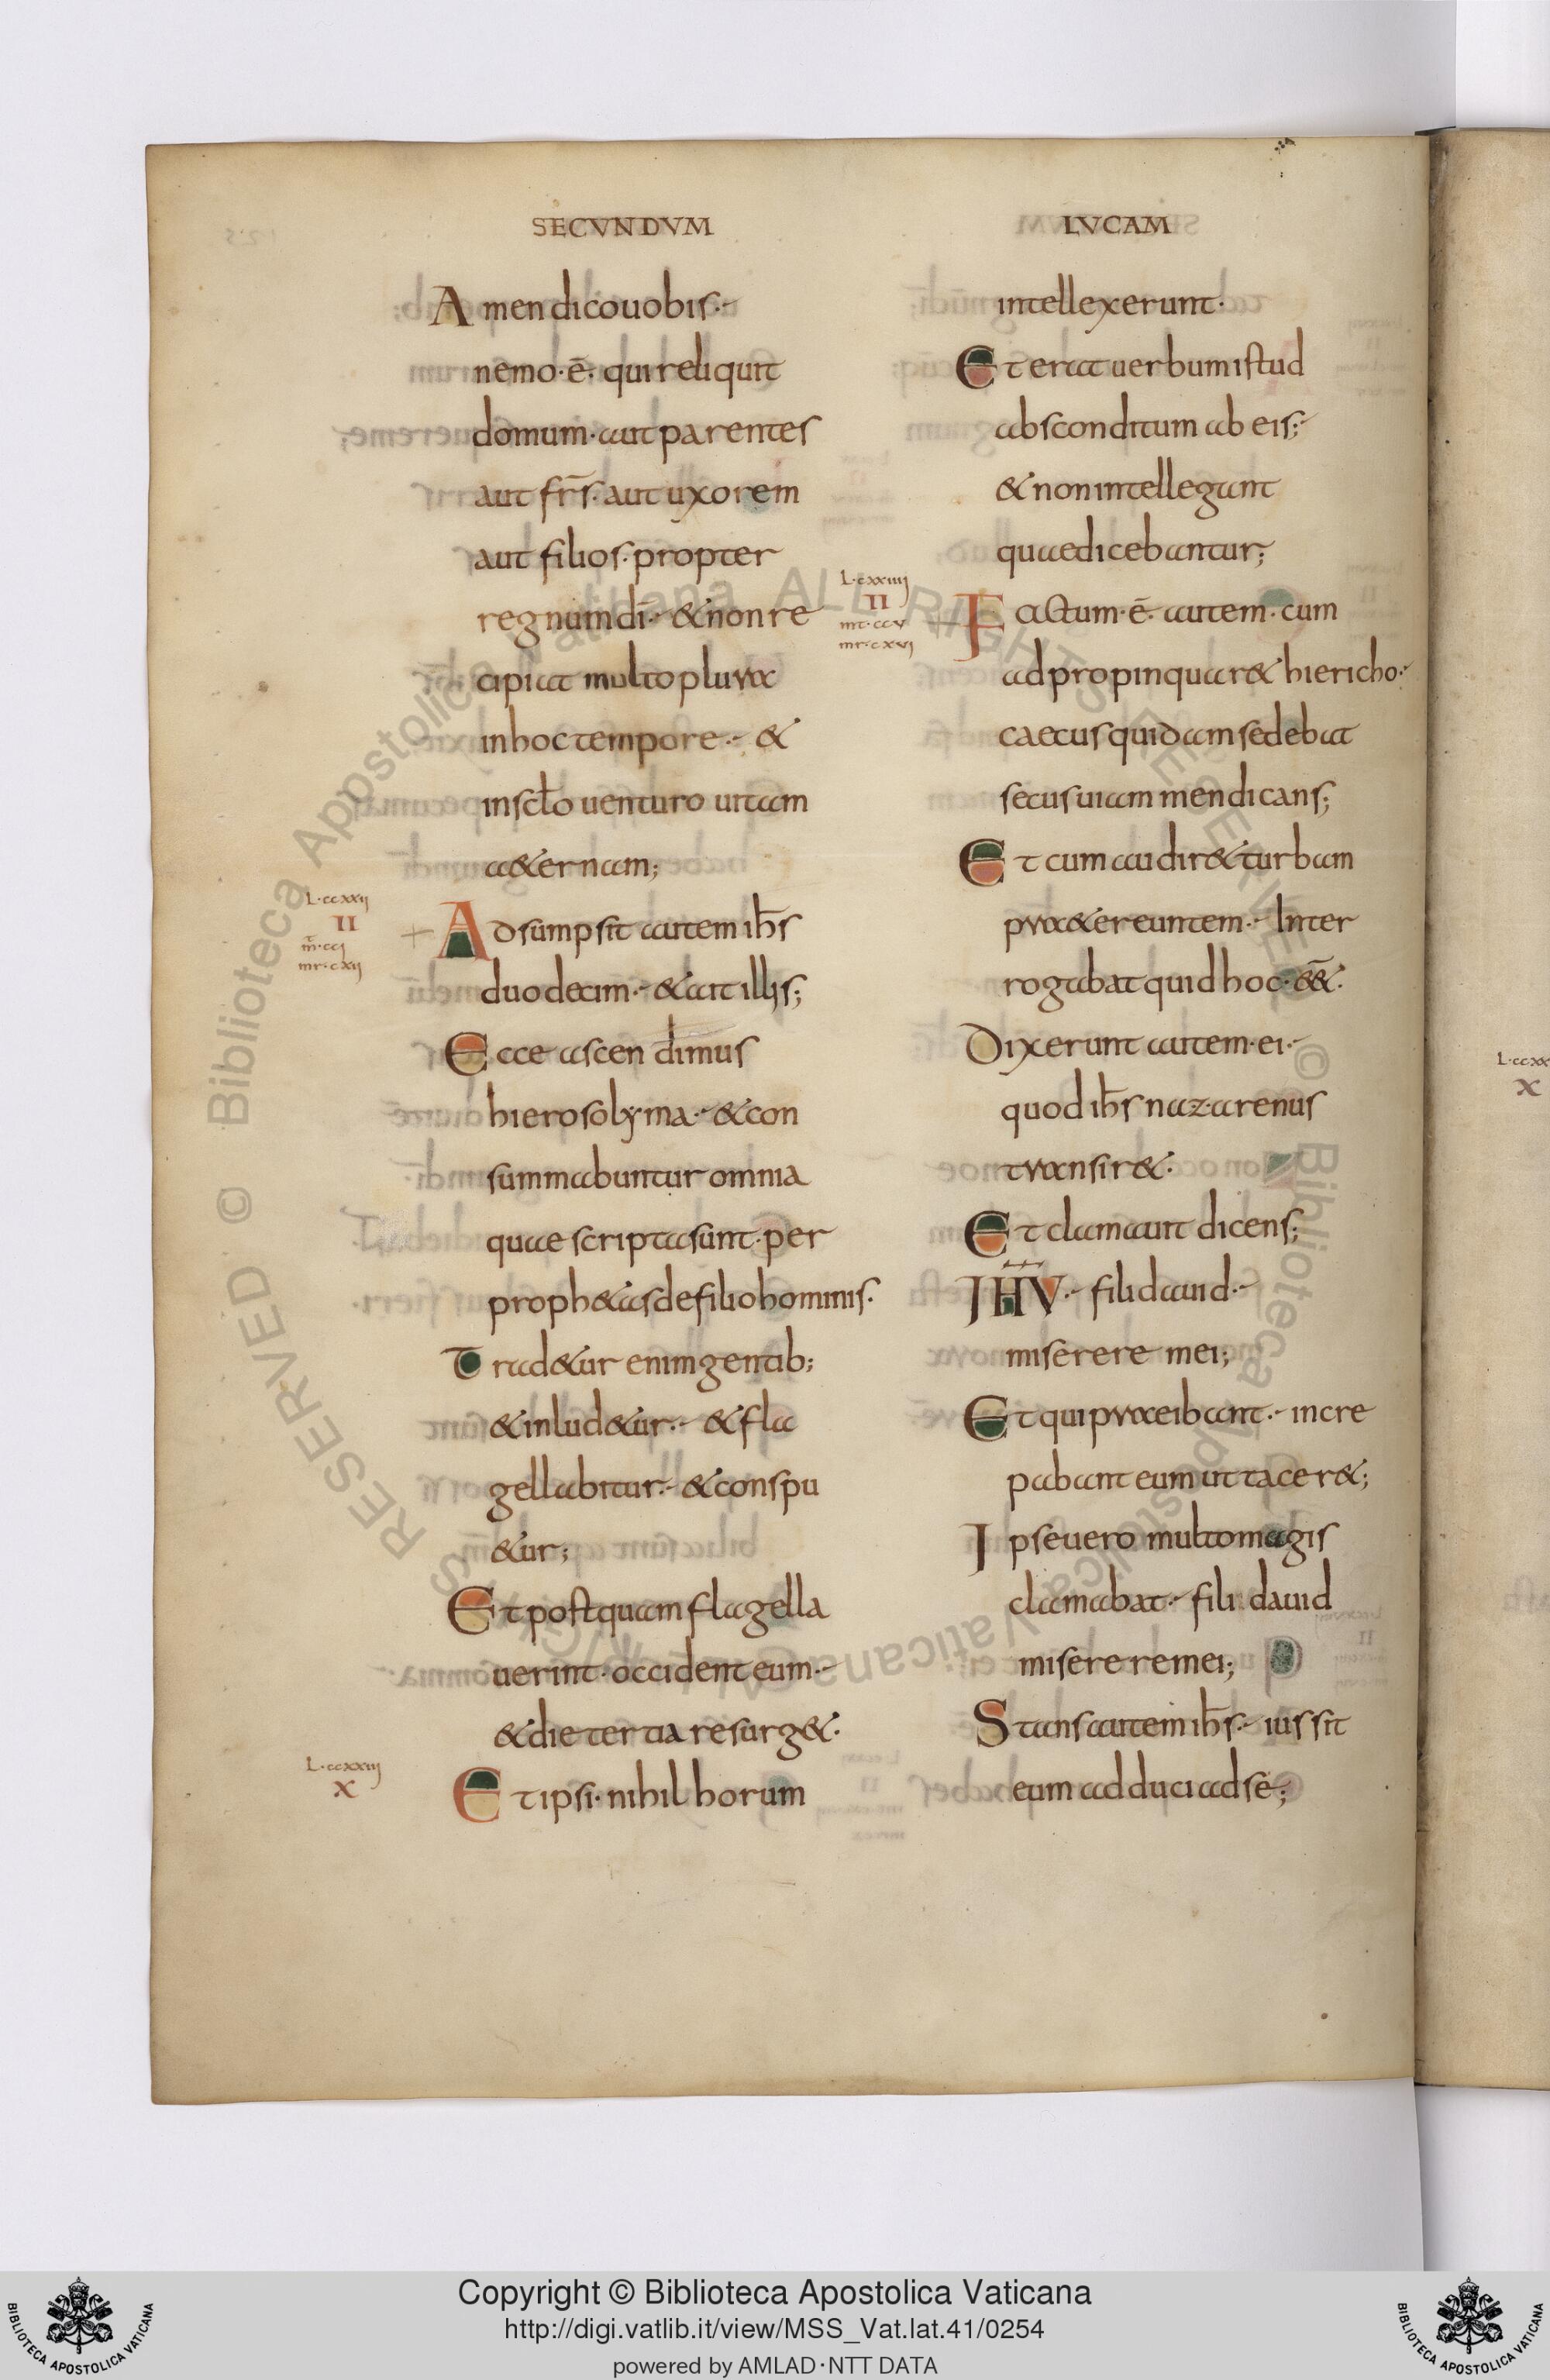 SECVNDVM
Amen dico uobis.
nemo·ē· qui reliquit
domum·aut parentes
aut fr̄s·aut uxorem
aut filios·propter
regnum dī· & non re
cipiat multo plura
in hoc tempore· &
in scło uenturo uitam
a&ernam;
L·ccxxij
II
mt·ccj
mr·cxij
Adsumpsit autem ih̄s
duodecim·& ait illis;
Ecce ascendimus
hierosolyma·& con
summabuntur omnia
quae scripta sunt·per
proph&as de filio hominis·
Trad&ur enim gentib;
& inlud&ur·& fla
gellabitur·& conspu
&ur;
Et postquam flagella
uerint·occident eum·
& die tertia resurg&·
L·ccxxiij
X
Et ipsi·nihil horum
LVCAM
intellexerunt·
Et erat uerbum istud
absconditum ab eis;
& non intellegant
quae dicebantur;
L·cxxiiij
II
mt·ccv
mr·cxvj
Factum·ē·autem·cum
adpropinquar& hiericho·
caecus quidam sedebat
secus uiam mendicans;
Et cum audir& turbam
praetereuntem·Inter
rogabat quid hoc·&&̄·
Dixerunt autem·ei·
quod ih̄s nazarenus
transir&·
Et clamauit dicens;
IH̄V·fili dauid·
miserere mei;
Et qui praeibant·incre
pabant eum ut tacer&;
Ipse uero multo magis
clamabat·fili dauid
miserere mei;
Stans autem ih̄s·iussit
eum adduci ad se;
L·ccxx
X
Copyright © Biblioteca Apostolica Vaticana
http://digi.vatlib.it/view/MSS_Vat.lat.41/0254
powered by AMLAD·NTT DATA
BIBLIOTECA APOSTOLICA VATICANA
BIBLIOTECA APOSTOLICA VATICANA
© Biblioteca Apostolica Vaticana ALL RIGHTS RESERVED
© Biblioteca Apostolica Vaticana ALL RIGHTS RESERVED